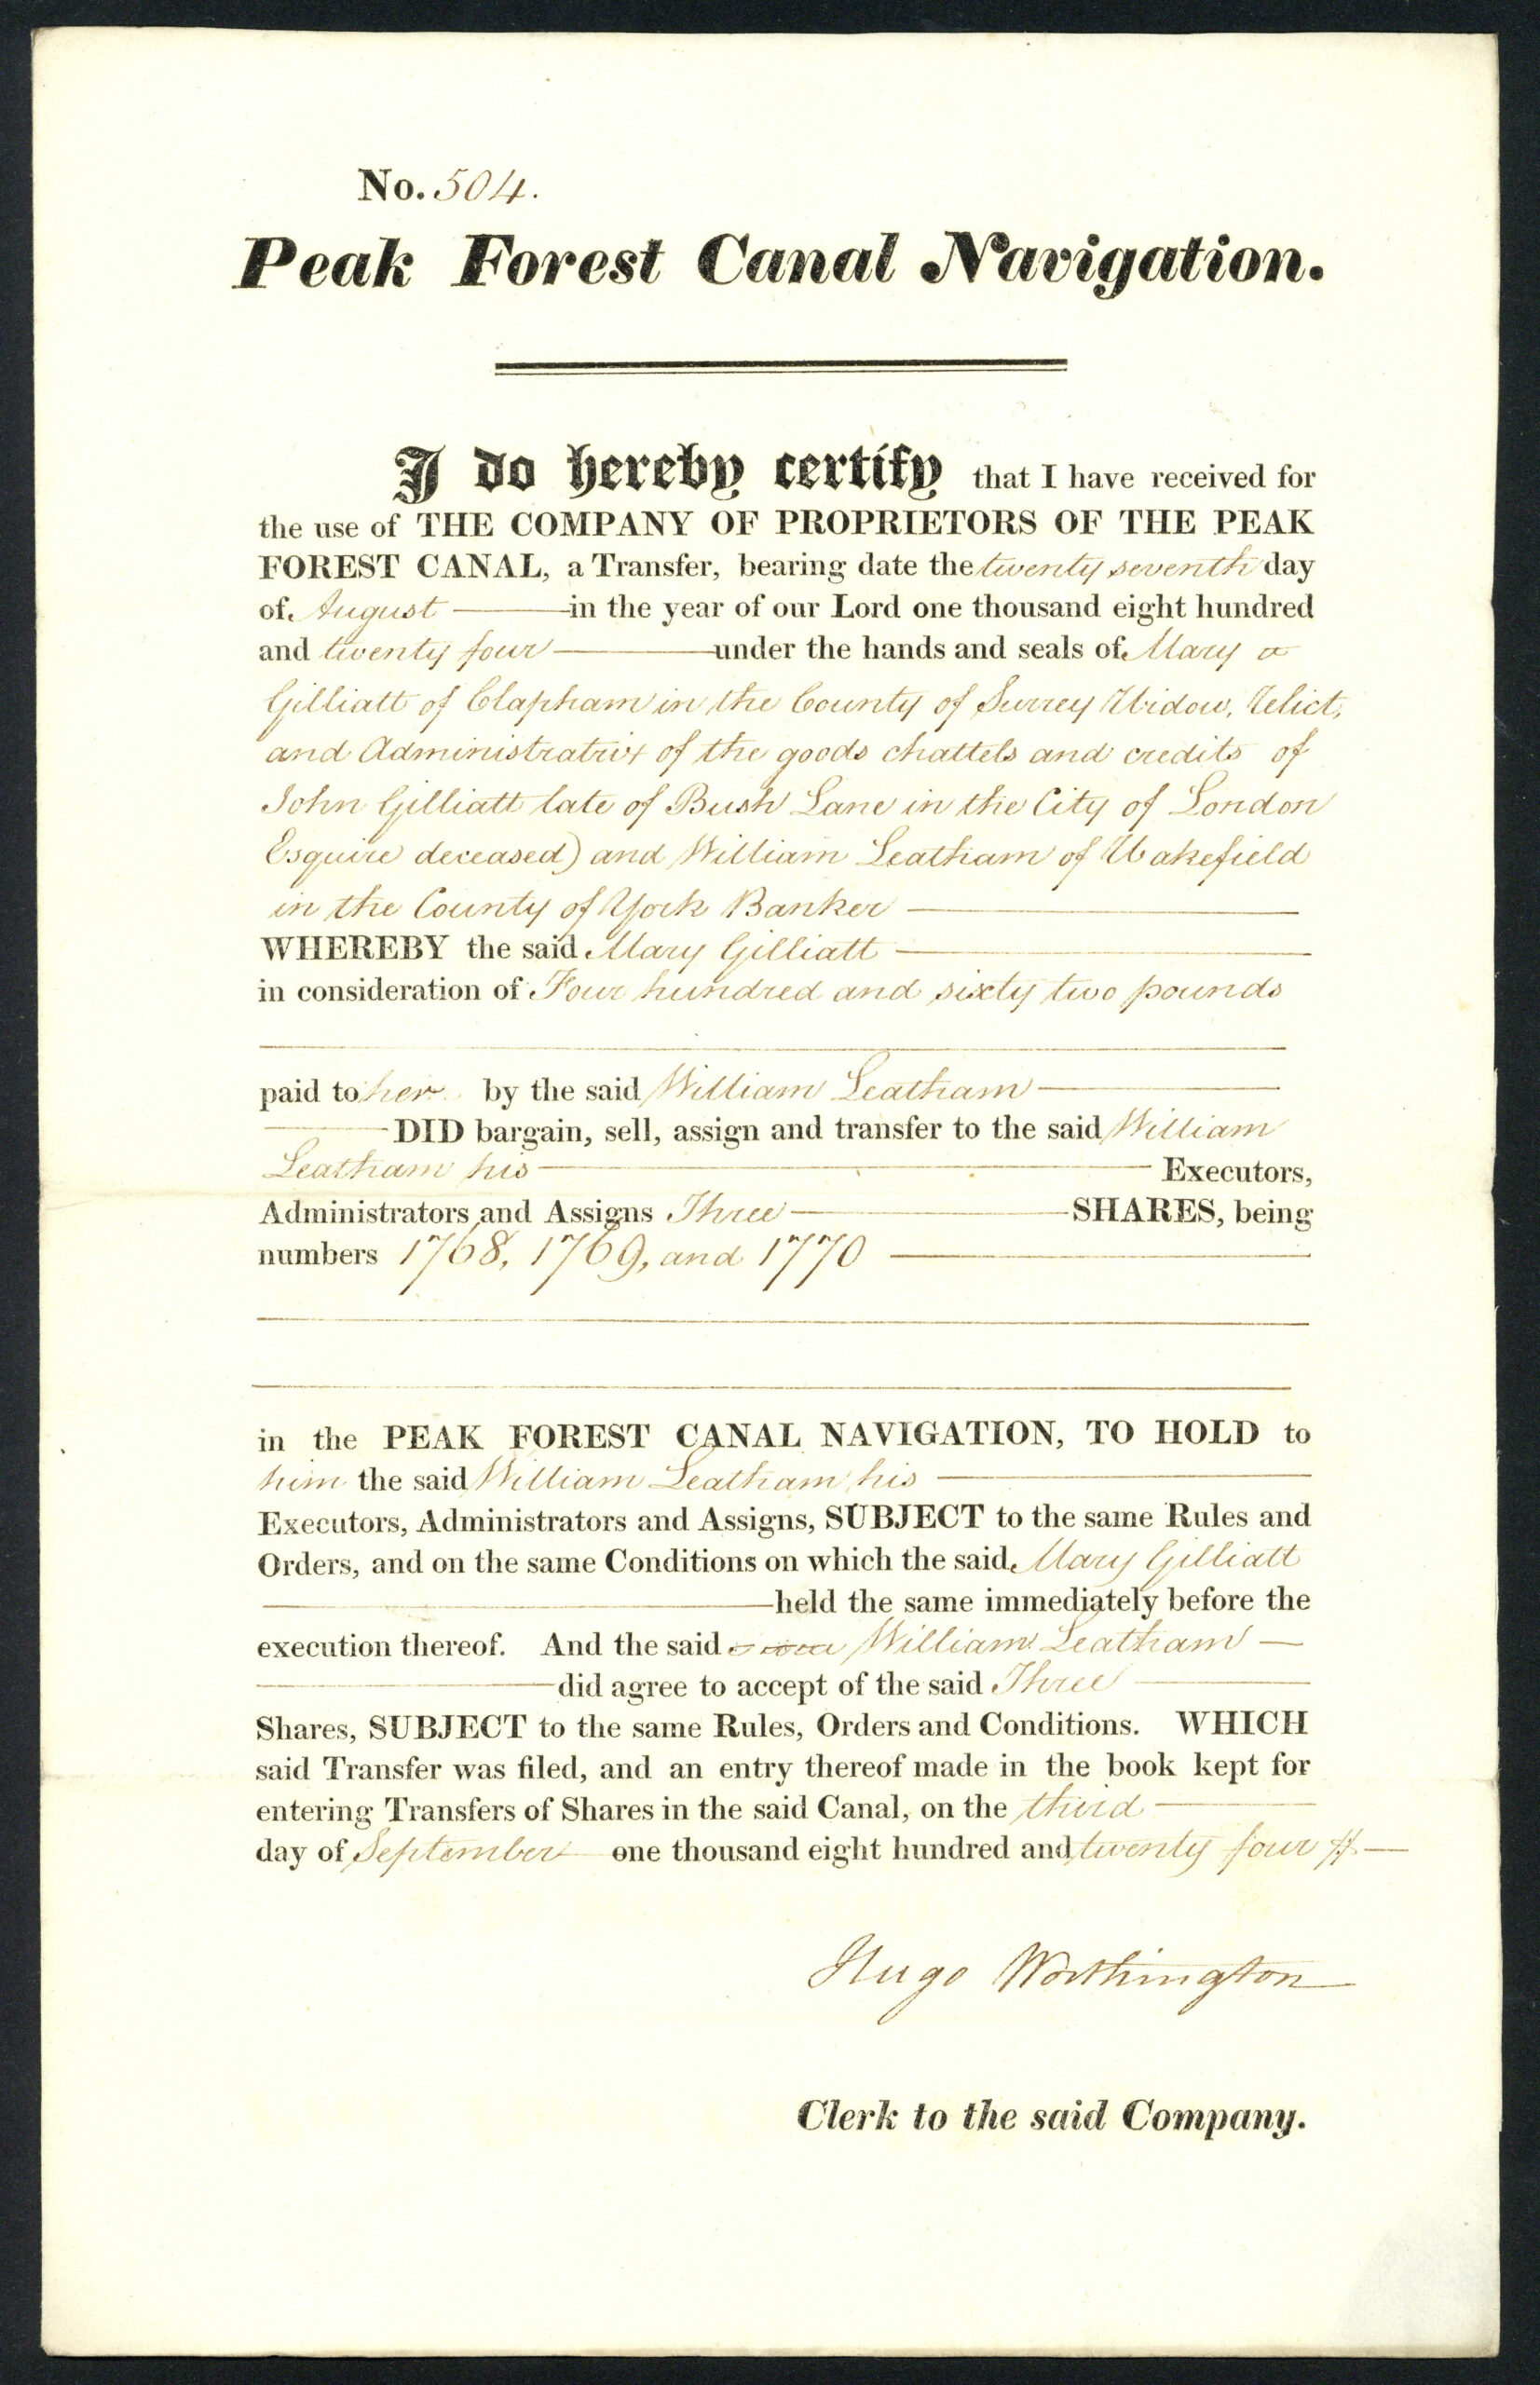 No. 504.
Peak Forest Canal Navigation.
I do hereby certify that I have received for
the use of THE COMPANY OF PROPRIETORS OF THE PEAK
FOREST CANAL, a Transfer, bearing date the twenty seventh day
of August in the year of our Lord one thousand eight hundred
and twenty four under the hands and seals of Mary
Gilliatt of Clapham in the County of Surrey Widow, Relict,
and Administratrix of the goods chattels and credits of
John Gilliatt late of Bush Lane in the City of London
Esquire deceased) and William Leatham of Wakefield
in the County of York Banker
WHEREBY the said Mary Gilliatt
in consideration of Four hundred and sixty two pounds
paid to her by the said William Leatham
DID bargain, sell, assign and transfer to the said William
Leatham his Executors,
Administrators and Assigns Three SHARES, being
numbers 1768, 1769, and 1770
in the PEAK FOREST CANAL NAVIGATION, TO HOLD to
him the said William Leatham his
Executors, Administrators and Assigns, SUBJECT to the same Rules and
Orders, and on the same Conditions on which the said Mary Gilliatt
held the same immediately before the
execution thereof. And the said William Leatham
did agree to accept of the said Three
Shares, SUBJECT to the same Rules, Orders and Conditions. WHICH
said Transfer was filed, and an entry thereof made in the book kept for
entering Transfers of Shares in the said Canal, on the third
day of September one thousand eight hundred and twenty four
Hugo Worthington
Clerk to the said Company.